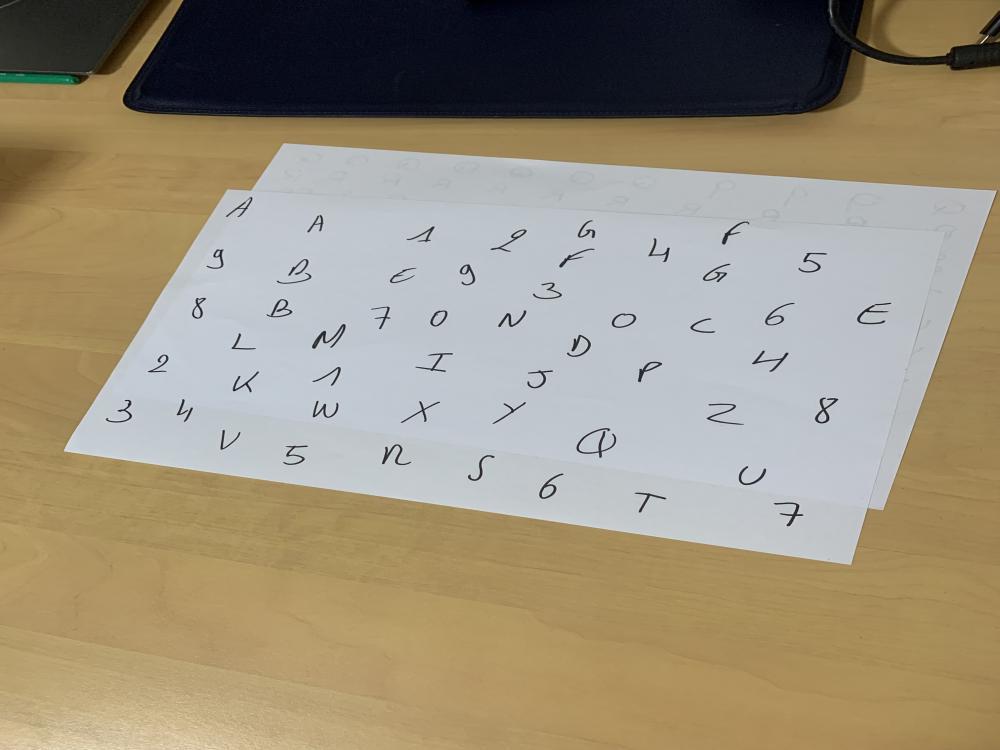 A A 1 2 G 4 F 5
9 B E 9 F 3 G
8 B 7 O N O C 6 E
L M I D P 4
2 K 1 J
3 4 W X Y Q Z 8
V 5 R S 6 T U 7